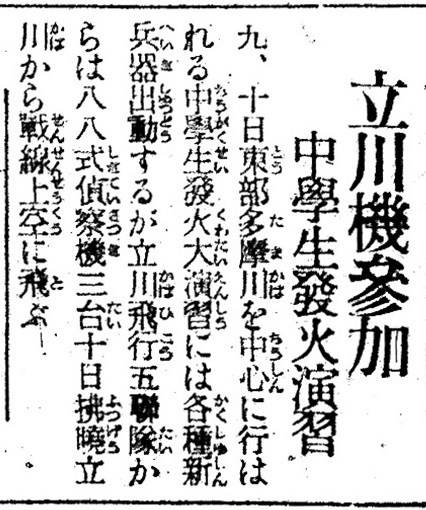 立川機參加
中學生發火演習
九、十日東部多摩川を中心に行は
れる中學生發火大演習には各種新
兵器出動するが立川飛行五聯隊か
らは八八式偵察機三台十日拂曉立
川から戰線上空に飛ぶ。